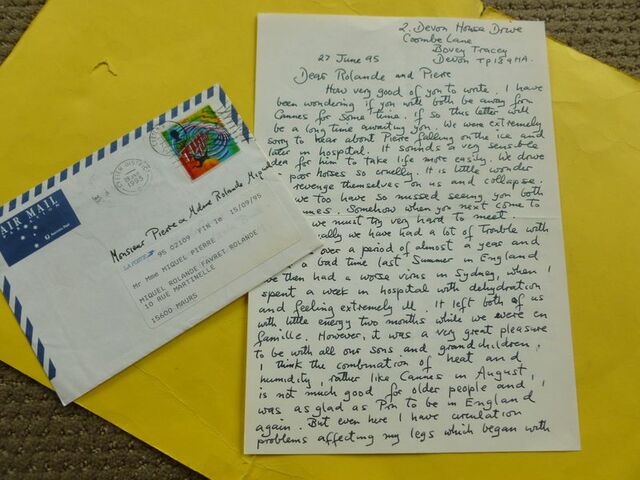 2. Devon House Drive
Coombe Lane
Bovey Tracey
Devon TQ13 9HA.
27 June 95
Dear Rolande and Pierre
How very good of you to write. I have
been wondering if you will both be away from
Cannes for some time. If so this letter will
be a long time awaiting you. We were extremely
sorry to hear about Pierre falling on the ice and
later in hospital. It sounds a very sensible
idea for him to take life more easily. We drive
poor horses so cruelly. It is little wonder
revenge themselves on us and collapse.
we too have so missed seeing you both
Somehow when you next come to
we must try very hard to meet.
we have had a lot of trouble with
over a period of almost a year and
a bad time last Summer in England
we then had a worse virus in Sydney, when I
spent a week in hospital with dehydration
and feeling extremely ill. It left both of us
with little energy two months while we were en
famille. However, it was a very great pleasure
to be with all our sons and grandchildren.
I think the combination of heat and
humidity, rather like Cannes in August,
is not much good for older people and I
was as glad as Pin to be in England
again. But even here I have circulation
problems affecting my legs which began with
AIR MAIL
1995
Monsieur Pierre Mdame Rolande Miquel
LA POSTE 95 02109 FIN le 15/09/95
Mr Mme MIQUEL PIERRE
MIQUEL ROLANDE FAVRET ROLANDE
10 RUE MARTINELLE
15600 MAURS